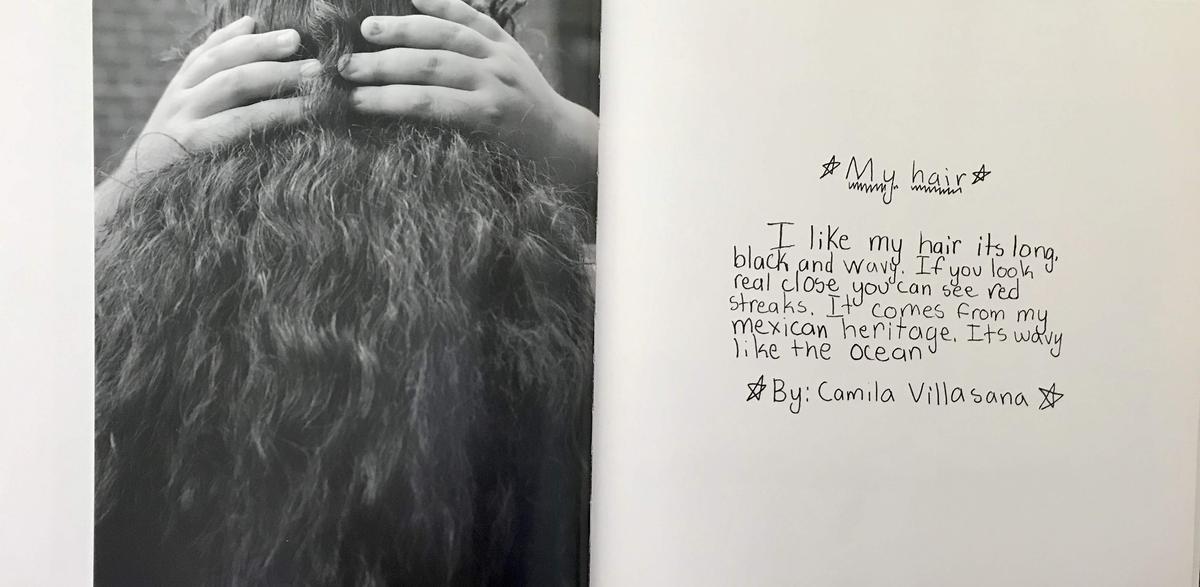 ☆ My hair ☆
I like my hair its long,
black and wavy. If you look
real close you can see red
streaks. It comes from my
mexican heritage. Its wavy
like the ocean
☆ By: Camila Villasana ☆